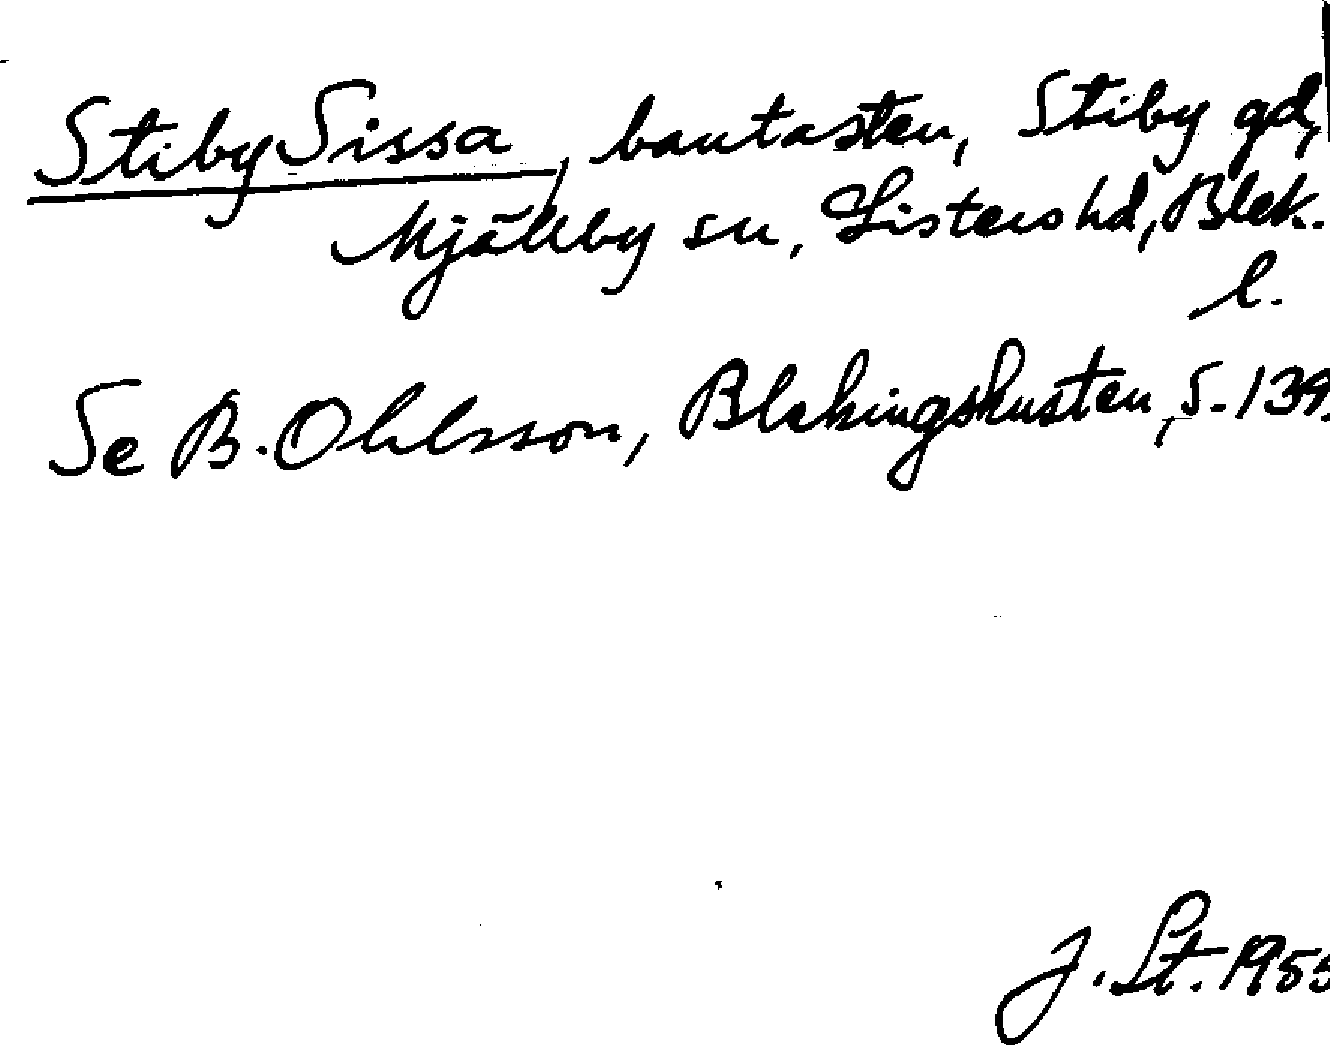 Stiby Sissa, bautasten, Stiby gd,
Mjällby sn, Listers hd, Blek.
l.
Se B. Ohlsson, Blekingskusten, s. 139.
J. St. 1955